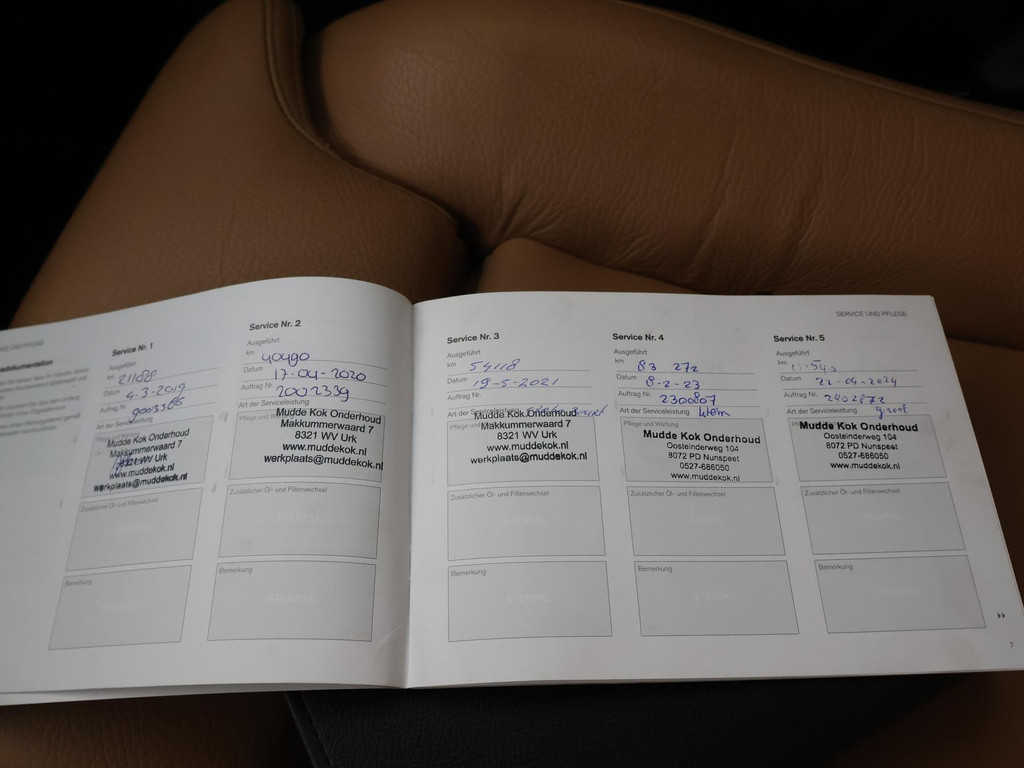 SERVICE UND PFLEGE
Service Nr. 1
Ausgeführt
km 21088
Datum 4-3-2019
Auftrag Nr.
Mudde Kok Onderhoud
Makkummerwaard 7
8321 WV Urk
www.muddekok.nl
werkplaats@muddekok.nl
Zusätzlicher Öl- und Filterwechsel
Bemerkung
Service Nr. 2
Ausgeführt
km 40490
Datum 17-04-2020
Auftrag Nr. 2002339
Art der Serviceleistung
Mudde Kok Onderhoud
Makkummerwaard 7
8321 WV Urk
www.muddekok.nl
werkplaats@muddekok.nl
Zusätzlicher Öl- und Filterwechsel
Bemerkung
Service Nr. 3
Ausgeführt
km 54118
Datum 19-5-2021
Auftrag Nr.
Art der Serviceleistung
Mudde Kok Onderhoud
Makkummerwaard 7
8321 WV Urk
www.muddekok.nl
werkplaats@muddekok.nl
Zusätzlicher Öl- und Filterwechsel
Bemerkung
Service Nr. 4
Ausgeführt
km 83 272
Datum 8-2-23
Auftrag Nr. 2300807
Art der Serviceleistung klein
Pflege und Wartung
Mudde Kok Onderhoud
Oosteinderweg 104
8072 PD Nunspeet
0527-686050
www.muddekok.nl
Zusätzlicher Öl- und Filterwechsel
Bemerkung
Service Nr. 5
Ausgeführt
km
Datum 22-04-2024
Auftrag Nr. 2402872
Art der Serviceleistung groot
Mudde Kok Onderhoud
Oosteinderweg 104
8072 PD Nunspeet
0527-686050
www.muddekok.nl
Zusätzlicher Öl- und Filterwechsel
Bemerkung
7